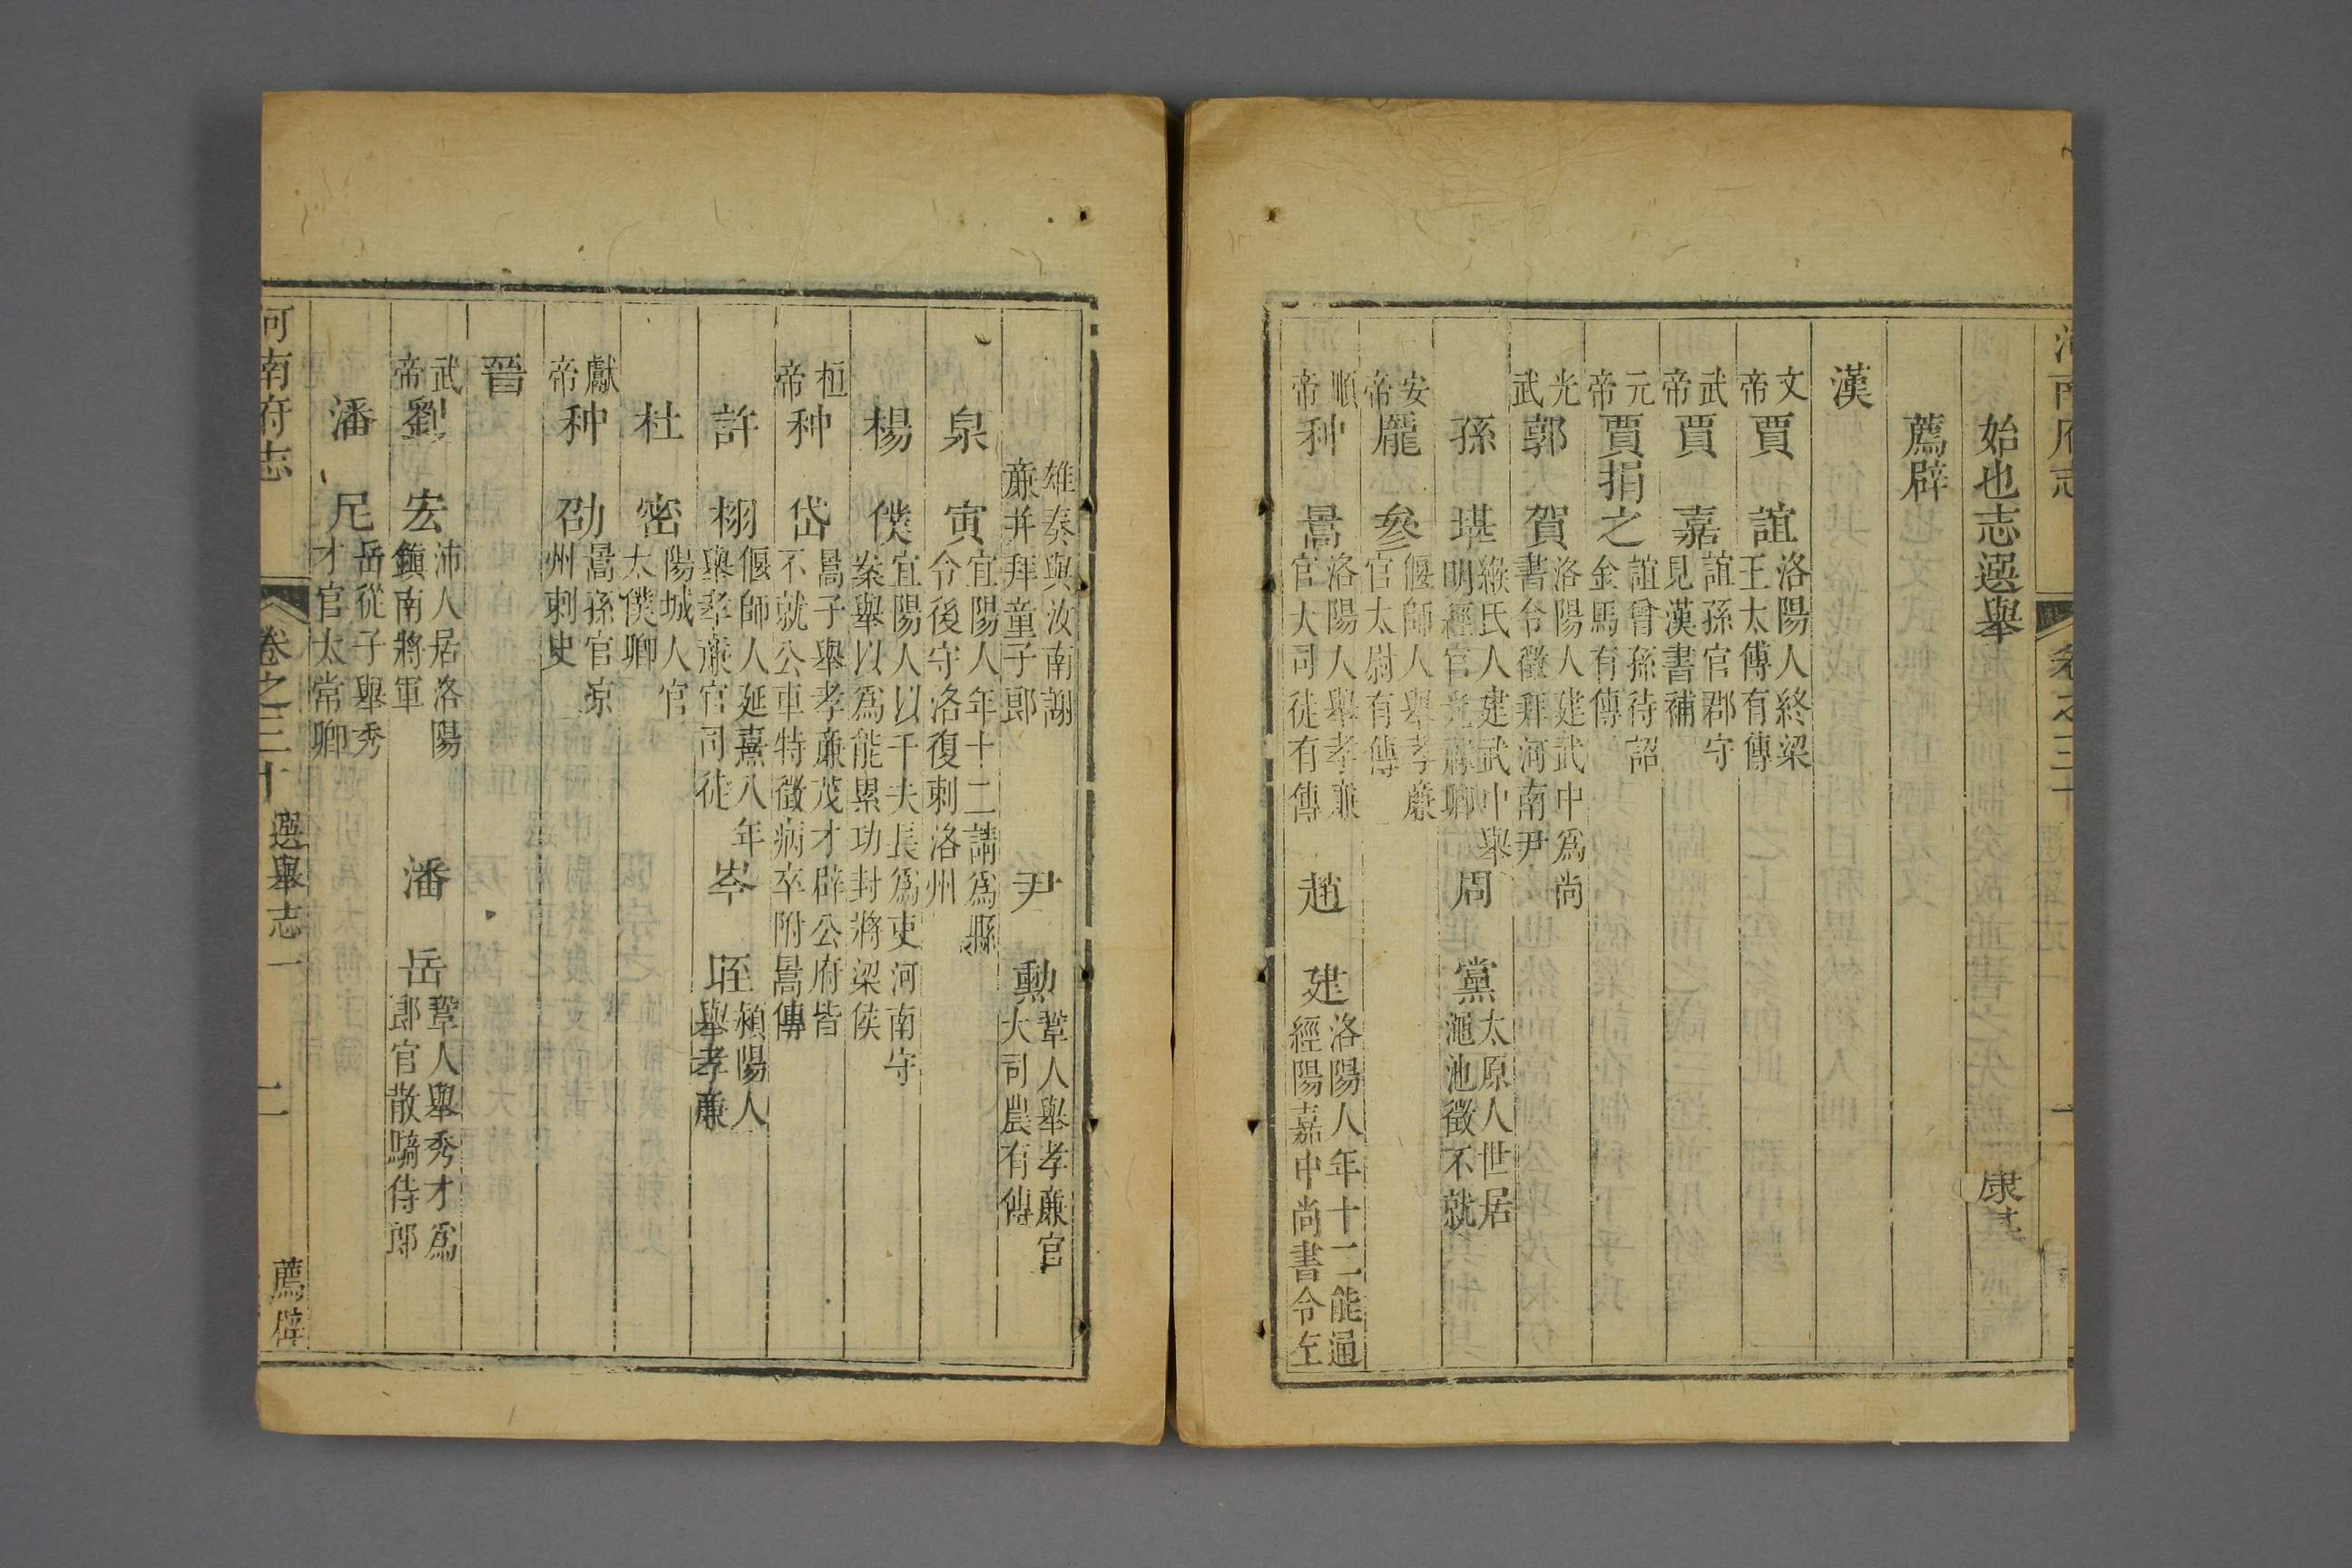 始也志選舉
薦辟
漢
文帝 賈誼 洛陽人終梁王太傅有傳
武帝 賈嘉 誼孫官郡守見漢書補
元帝 賈捐之 誼曾孫待詔金馬有傳
光武 郭賀 洛陽人建武中爲尚書令徵拜河南尹
孫堪 緱氏人建武中舉明經官光祿卿 周黨 太原人世居澠池徵不就
安帝 龐參 偃師人舉孝廉官太尉有傳
順帝 种暠 洛陽人舉孝廉官大司徒有傳 趙建 洛陽人年十二能通經陽嘉中尚書令左
雄奏與汝南謝廉并拜童子郎 尹勳 鞏人舉孝廉官大司農有傳
泉寅 宜陽人年十二請爲縣令後守洛復刺洛州
楊僕 宜陽人以千夫長爲吏河南守案舉以爲能累功封將梁侯
桓帝 种岱 暠子舉孝廉茂才辟公府皆不就公車特徵病卒附暠傳
許栩 偃師人延熹八年舉孝廉官司徒 岑晊 潁陽人舉孝廉
杜密 陽城人官太僕卿
獻帝 种劭 暠孫官凉州刺史
晉
武帝 劉宏 沛人居洛陽鎭南將軍 潘岳 鞏人舉秀才爲郎官散騎侍郎
潘尼 岳從子舉秀才官太常卿
河南府志 卷之三十 選舉志一 二 薦辟